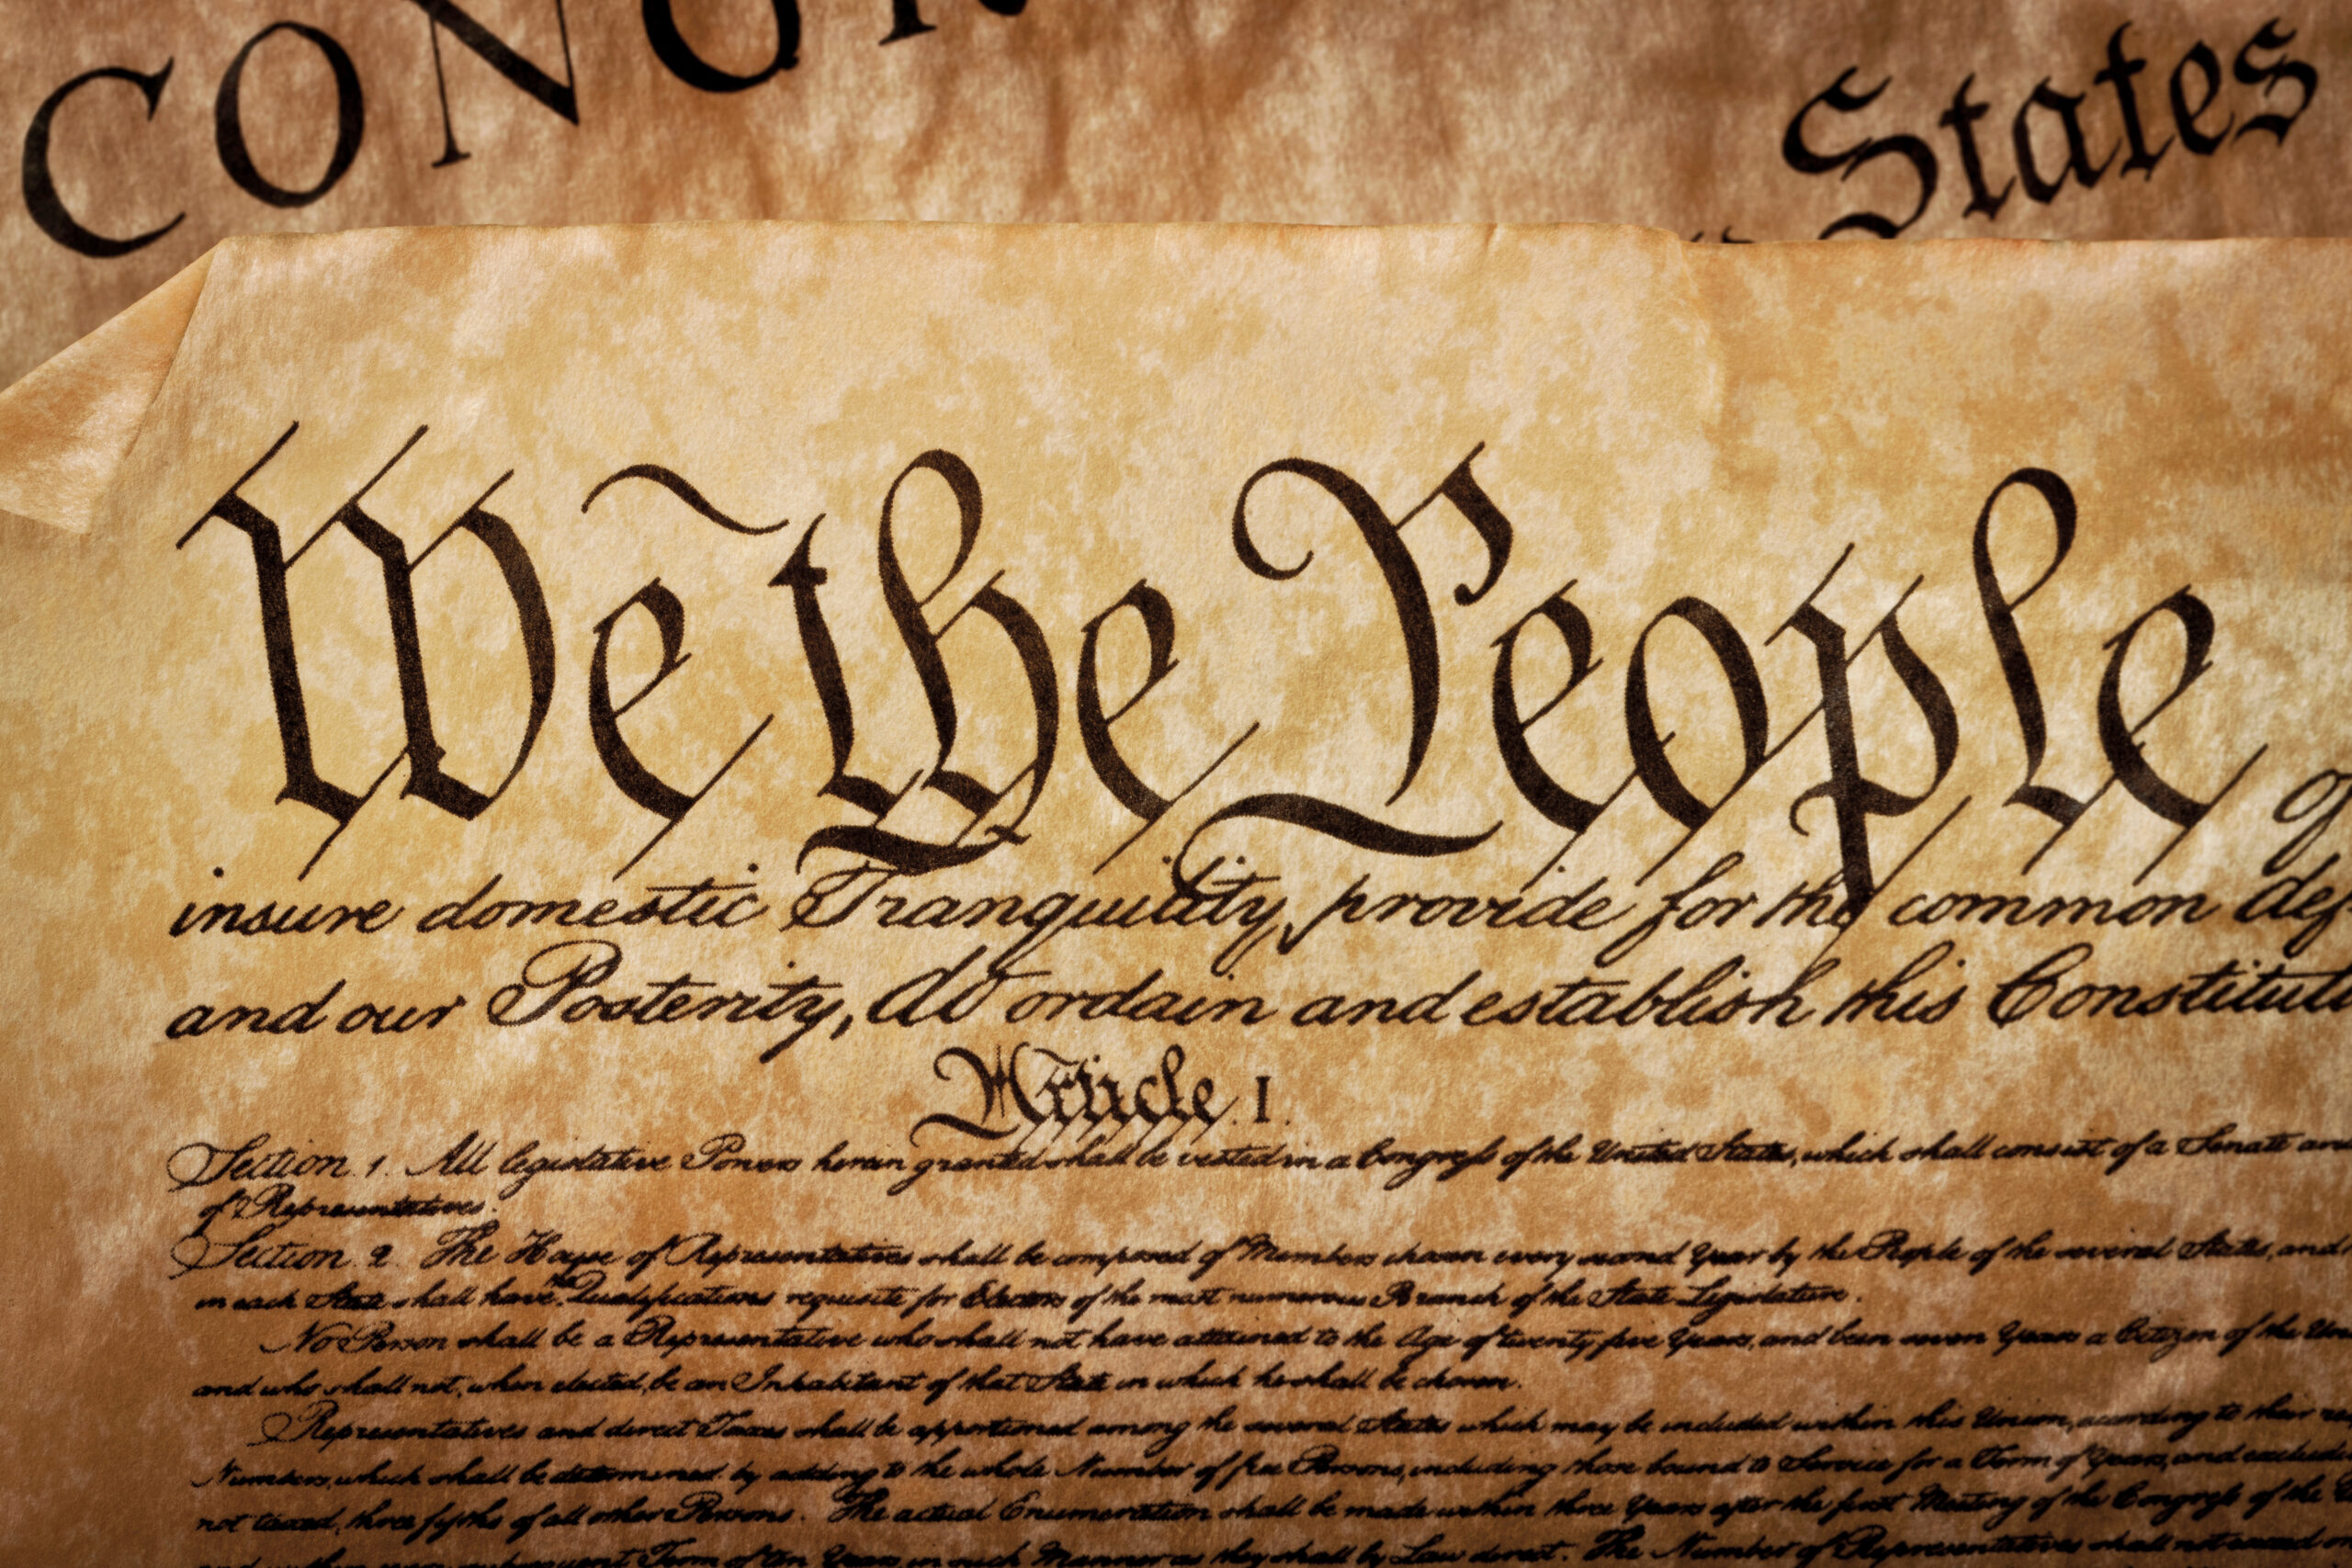 CONGR
States
We the People of
insure domestic Tranquility, provide for the common def
and our Posterity, do ordain and establish this Constituti
Article. I.
Section. 1. All legislative Powers herein granted shall be vested in a Congress of the United States, which shall consist of a Senate and
of Representatives.
Section. 2. The House of Representatives shall be composed of Members chosen every second Year by the People of the several States, and
in each State shall have the Qualifications requisite for Electors of the most numerous Branch of the State Legislature.
No Person shall be a Representative who shall not have attained to the Age of twenty five Years, and been seven Years a Citizen of the Un
and who shall not, when elected, be an Inhabitant of that State in which he shall be chosen.
Representatives and direct Taxes shall be apportioned among the several States which may be included within this Union, according to their re
Numbers, which shall be determined by adding to the whole Number of free Persons, including those bound to Service for a Term of Years, and excludi
not taxed, three fifths of all other Persons. The actual Enumeration shall be made within three Years after the first Meeting of the Congress of the
and within every subsequent Term of ten Years, in such Manner as they shall by Law direct. The Number of Representatives shall not exceed